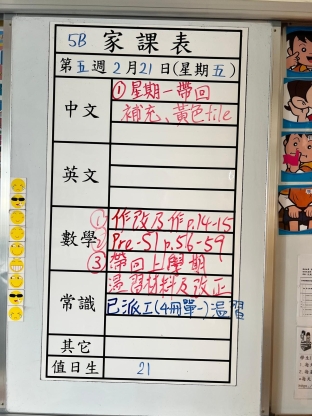 5B 家課表
第五週2月21日(星期五)
中文
①星期一帶回
補充、黃色file
英文
數學
①作改及作p.14-15
2 Pre-S1 p.56-59
③帶回上學期
溫習材料及改正
常識
已派工(4冊單一)溫習
其它
值日生 21